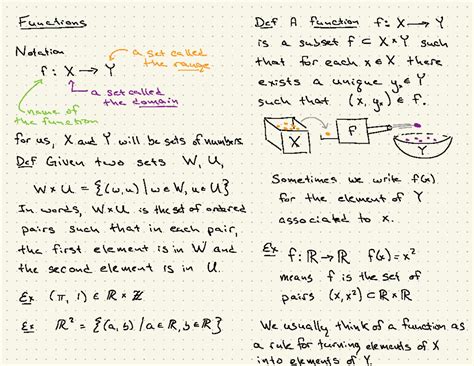 Functions
Notation
f: X → Y
a set called
the range
a set called
the domain
name of
the function
for us, X and Y will be sets of numbers.
Def Given two sets W, U,
W×U = {(w,u) | w∈W, u∈U}
In words, W×U is the set of ordered
pairs such that in each pair,
the first element is in W and
the second element is in U.
Ex (π, 1) ∈ ℝ × ℤ
Ex ℝ² = {(a, b) | a∈ℝ, b∈ℝ}
Def A function f: X → Y
is a subset f ⊂ X×Y such
that for each x∈X there
exists a unique yₓ∈Y
such that (x, yₓ) ∈ f.
X
F
Y
Sometimes we write f(x)
for the element of Y
associated to x.
Ex f: ℝ → ℝ f(x) = x²
means f is the set of
pairs (x, x²) ⊂ ℝ×ℝ
We usually think of a function as
a rule for turning elements of X
into elements of Y.